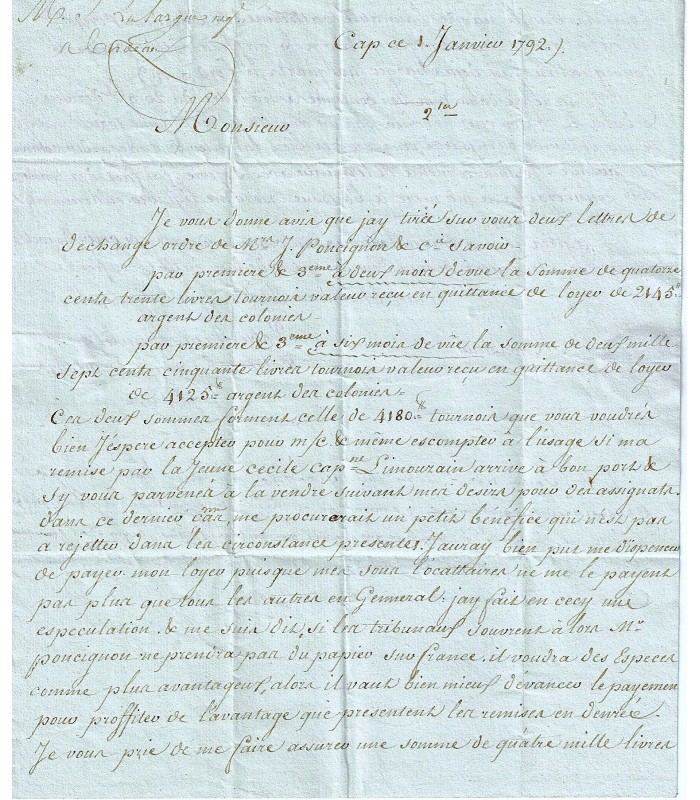 Mr. J. Lafargue negt.
a Bordeaux
Cap ce 1. Janvier 1792.)
2ta
Monsieur
Je vous donne avis que jay tiréé sur vous deux lettres de
dechange ordre de Mrs J. Poncignon & cie savoir
par premiere & 3eme à deux mois de vüe la somme de quatorze
cents trente livres tournois valeur reçu en quittance de loyer de 2145#
argent des colonies
par première & 3eme à six mois de vüe la somme de deux mille
sept cents cinquante livres tournois valeur reçu en quittance de loyer
de 4125# argent des colonies =
Ces deux sommes forment celle de 4180# tournois que vous voudrés
bien J'éspere accepter pour m/c & même escompter à l'usage si ma
remise par la Jeune cecile capne Limouzain arrive à bon port &
sy vous parvenés à la vendre suivant mes desirs pour des assignats.
dans ce dernier cas, me procurerais un petit bénéfice qui n'est pas
a rejetter dans les circonstance presentes. Jauray bien pus me dispencer
de payer mon loyer puisque mes sous locattaires ne me le payent
pas plus que tous les autres en Genneral. jay fait en cecy une
especulation & me suis dit, si les tribunaux souvrent à lors Mr
poncignon ne prendra pas du papier sur france. il voudra des Especes
comme plus avantageux, alors il vaut bien mieux dévancer le payemen
pour proffiter de l'avantage que presentent les remises en denrée.
Je vous prie de me faire assurer une somme de quatre mille livres